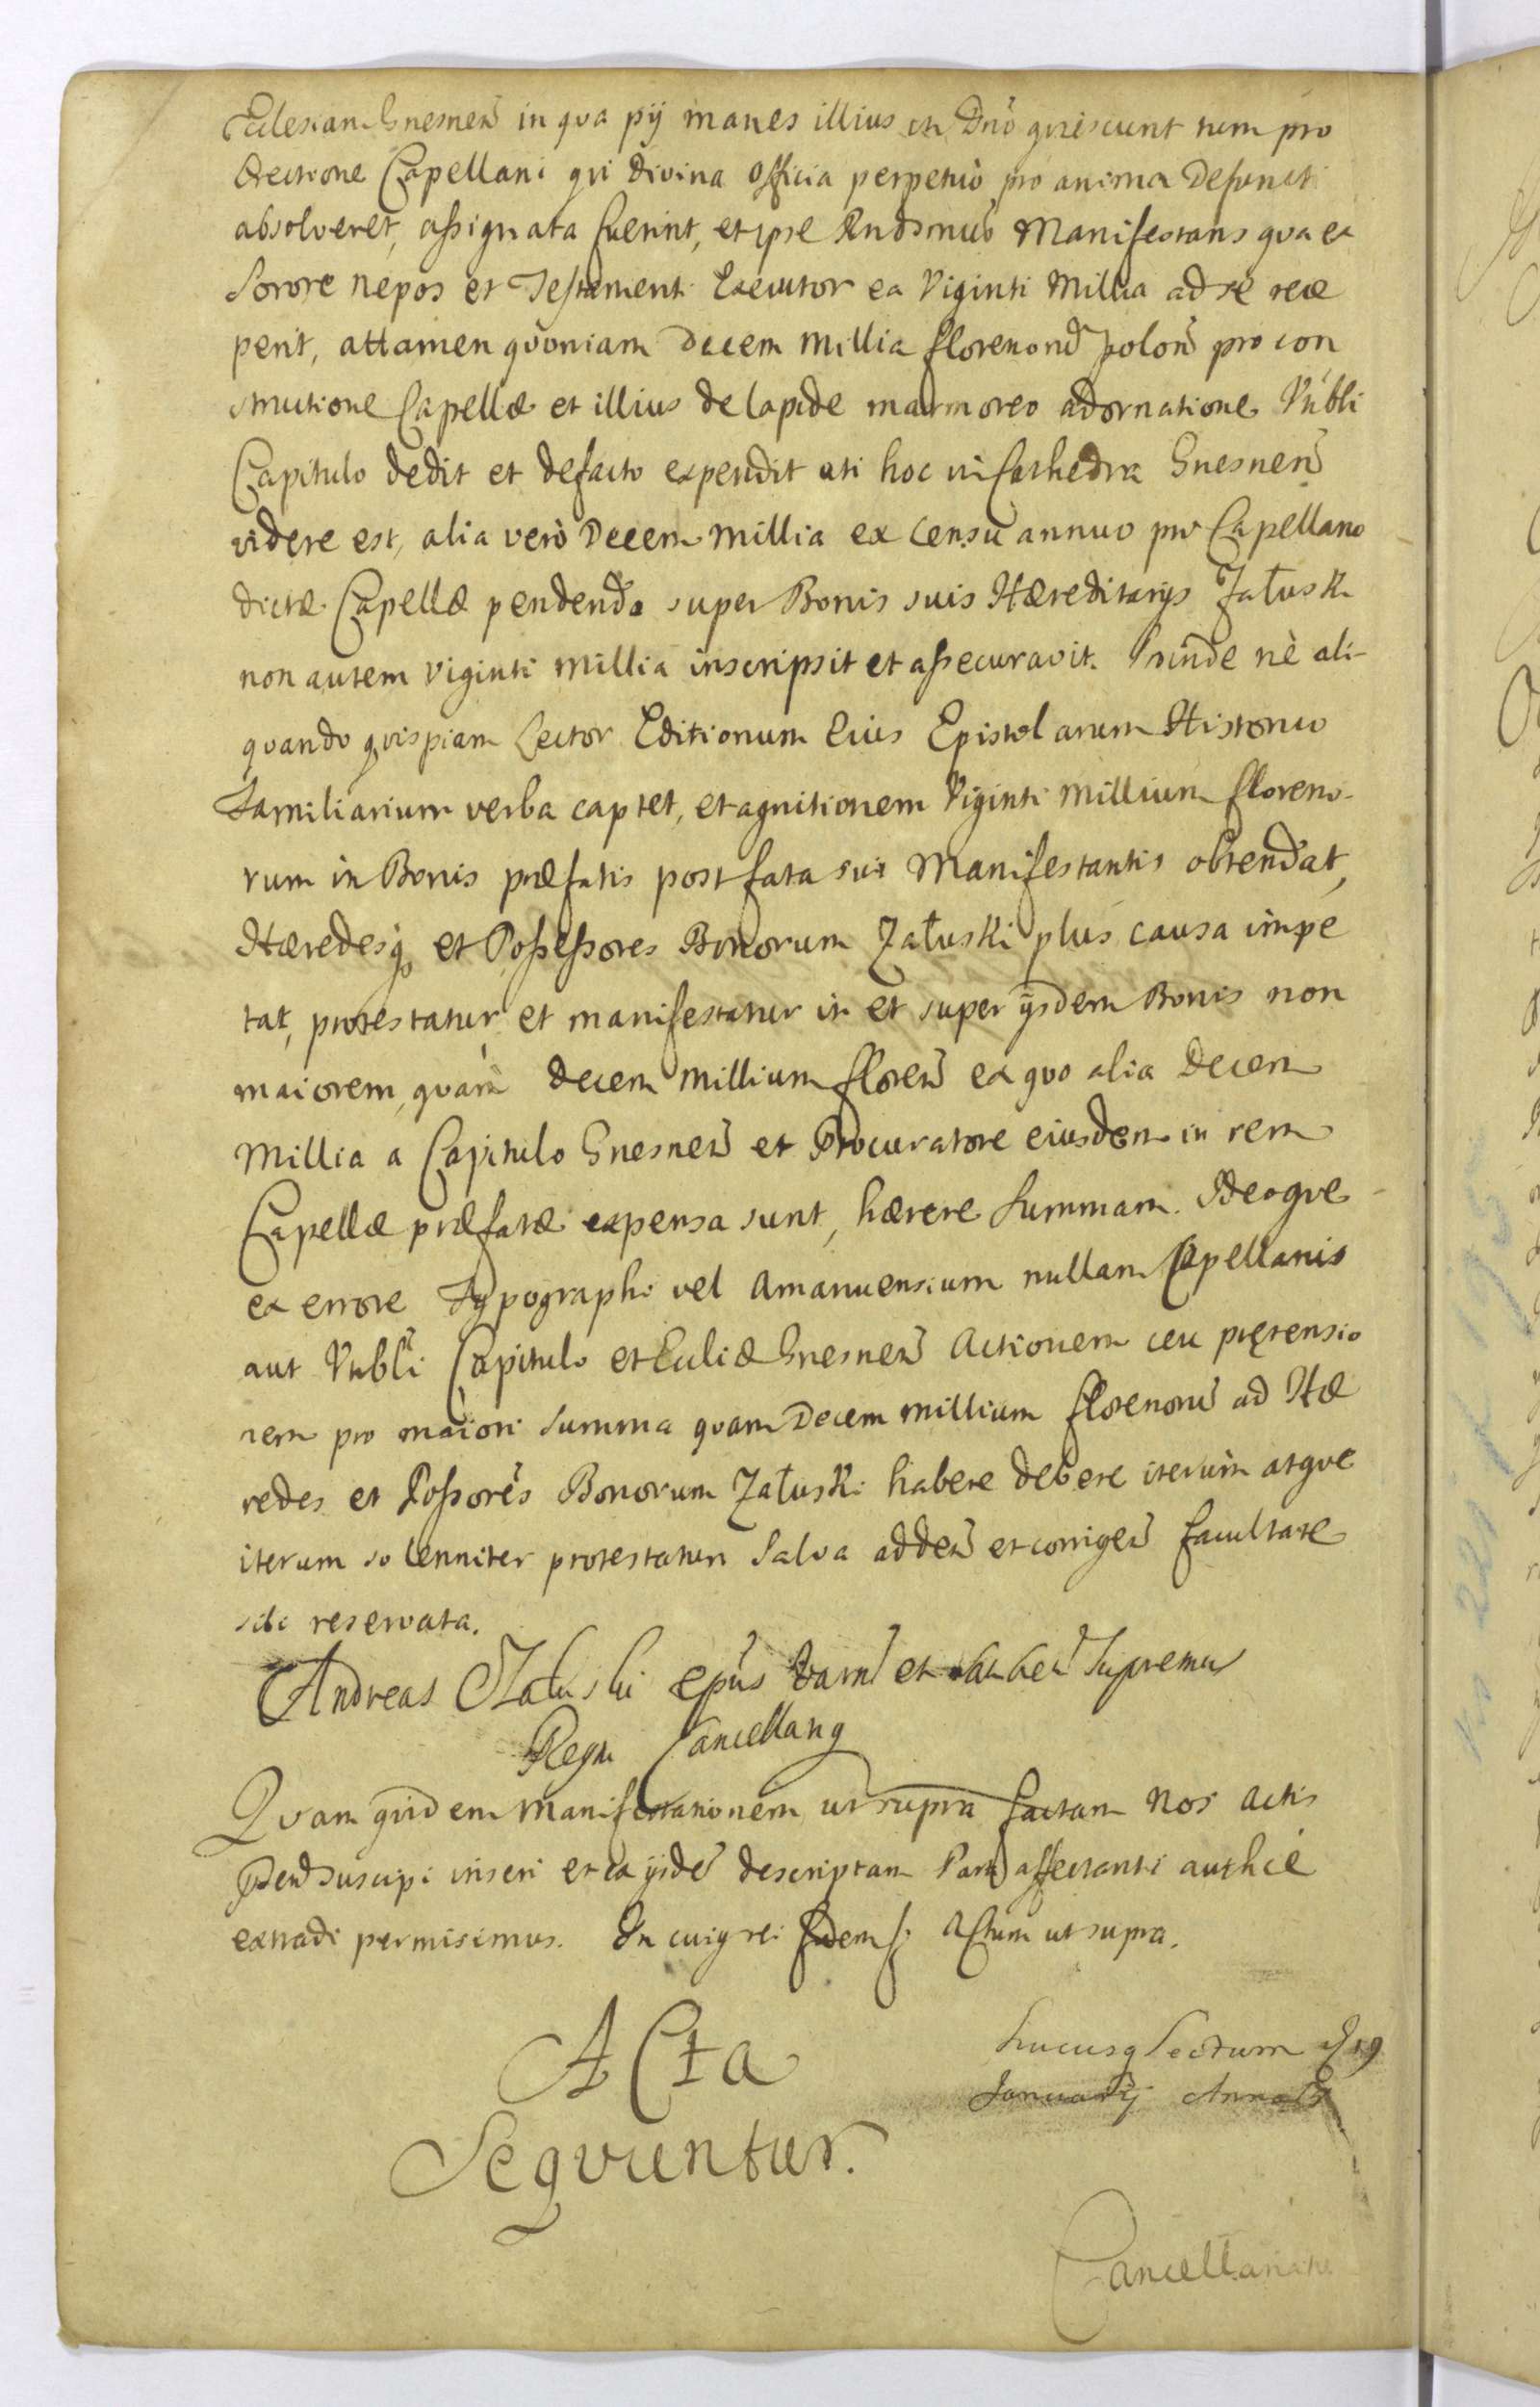 Ecclesiam Gnesnen in qva pij manes illius in Dno qviescunt tum pro
Erectione Capellani qvi divina Officia perpetuò pro anima Defuncti
absolveret, assignata fuerint, et ipse Rndsmus Manifestans qva ex
Sorore nepos et Testamenti Executor ea Viginti Millia ad se rece
perit, attamen qvoniam Decem Millia florenoru polon pro con
structione Capellæ et illius de lapide marmoreo adornatione Vnbli
Capitulo dedit et defacto expendit uti hoc in Cathedra Gnesnen
videre est, alia verò Decem millia ex Censu annuo pro Capellano
dictæ Capellæ pendendo super Bonis suis Hæreditarijs Załuski
non autem viginti millia inscripsit et assecuravit. Proinde nè ali-
qvando qvispiam Lector Editionum Eius Epistolarum Historico
Familiarium verba captet, et agnitionem Viginti millium floreno-
rum in Bonis præfatis post fata sui Manifestantis obtendat,
Hæredesq et Possessores Bonorum Załuski plus causa impe
tat, protestatur et manifestatur in et super ijsdem Bonis non
maiorem, qvam decem millium floren ex qvo alia Decem
Millia a Capitulo Gnesnen et Procuratore eiusdem in rem
Capellæ præfatæ expensa sunt, hærere Summam. Ideoqve
ex errore Typographi vel Amanuensium nullam Capellanis
aut Vnbli Capitulo et Ecclíæ Gnesnen Actionem ceu prætensio
nem pro maiori Summa qvam Decem millium florenoru ad Hæ
redes et Possores Bonorum Załuski habere debere iterùm atqve
iterum solenniter protestatur Salva adden et corrigen facultate
sibi reservata.
Andreas Załuski epus Varm et Supremus
Regni Cancellarius
Qvam qvidem Manifestationem ut supra factam Nos Actis
pnden suscipi inseri et ex ijsde descriptam Parti affectanti authce
extradi permisimus. In cuius rei fidem Actum ut supra.
Acta
Seqvuntur.
hucusq lectum 19
Januarij
Cancellariatu